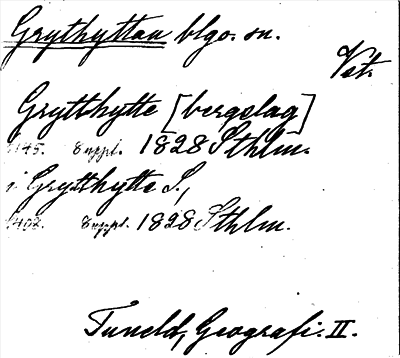 Grythyttan blgo. sn.
Vstr.
Grytthytte [bergslag]
145. Suppl. 1828 Sthlm.
i Grytthytte S.,
402. Suppl. 1828 Sthlm.
Tuneld, Geografi. II.